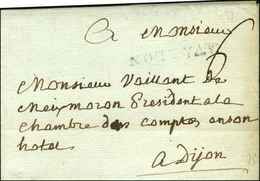 A Monsieur
AVALLON
Monsieur Vaillant de
Meixmoron President a la
chambre des comptes en son
hotel
a Dijon